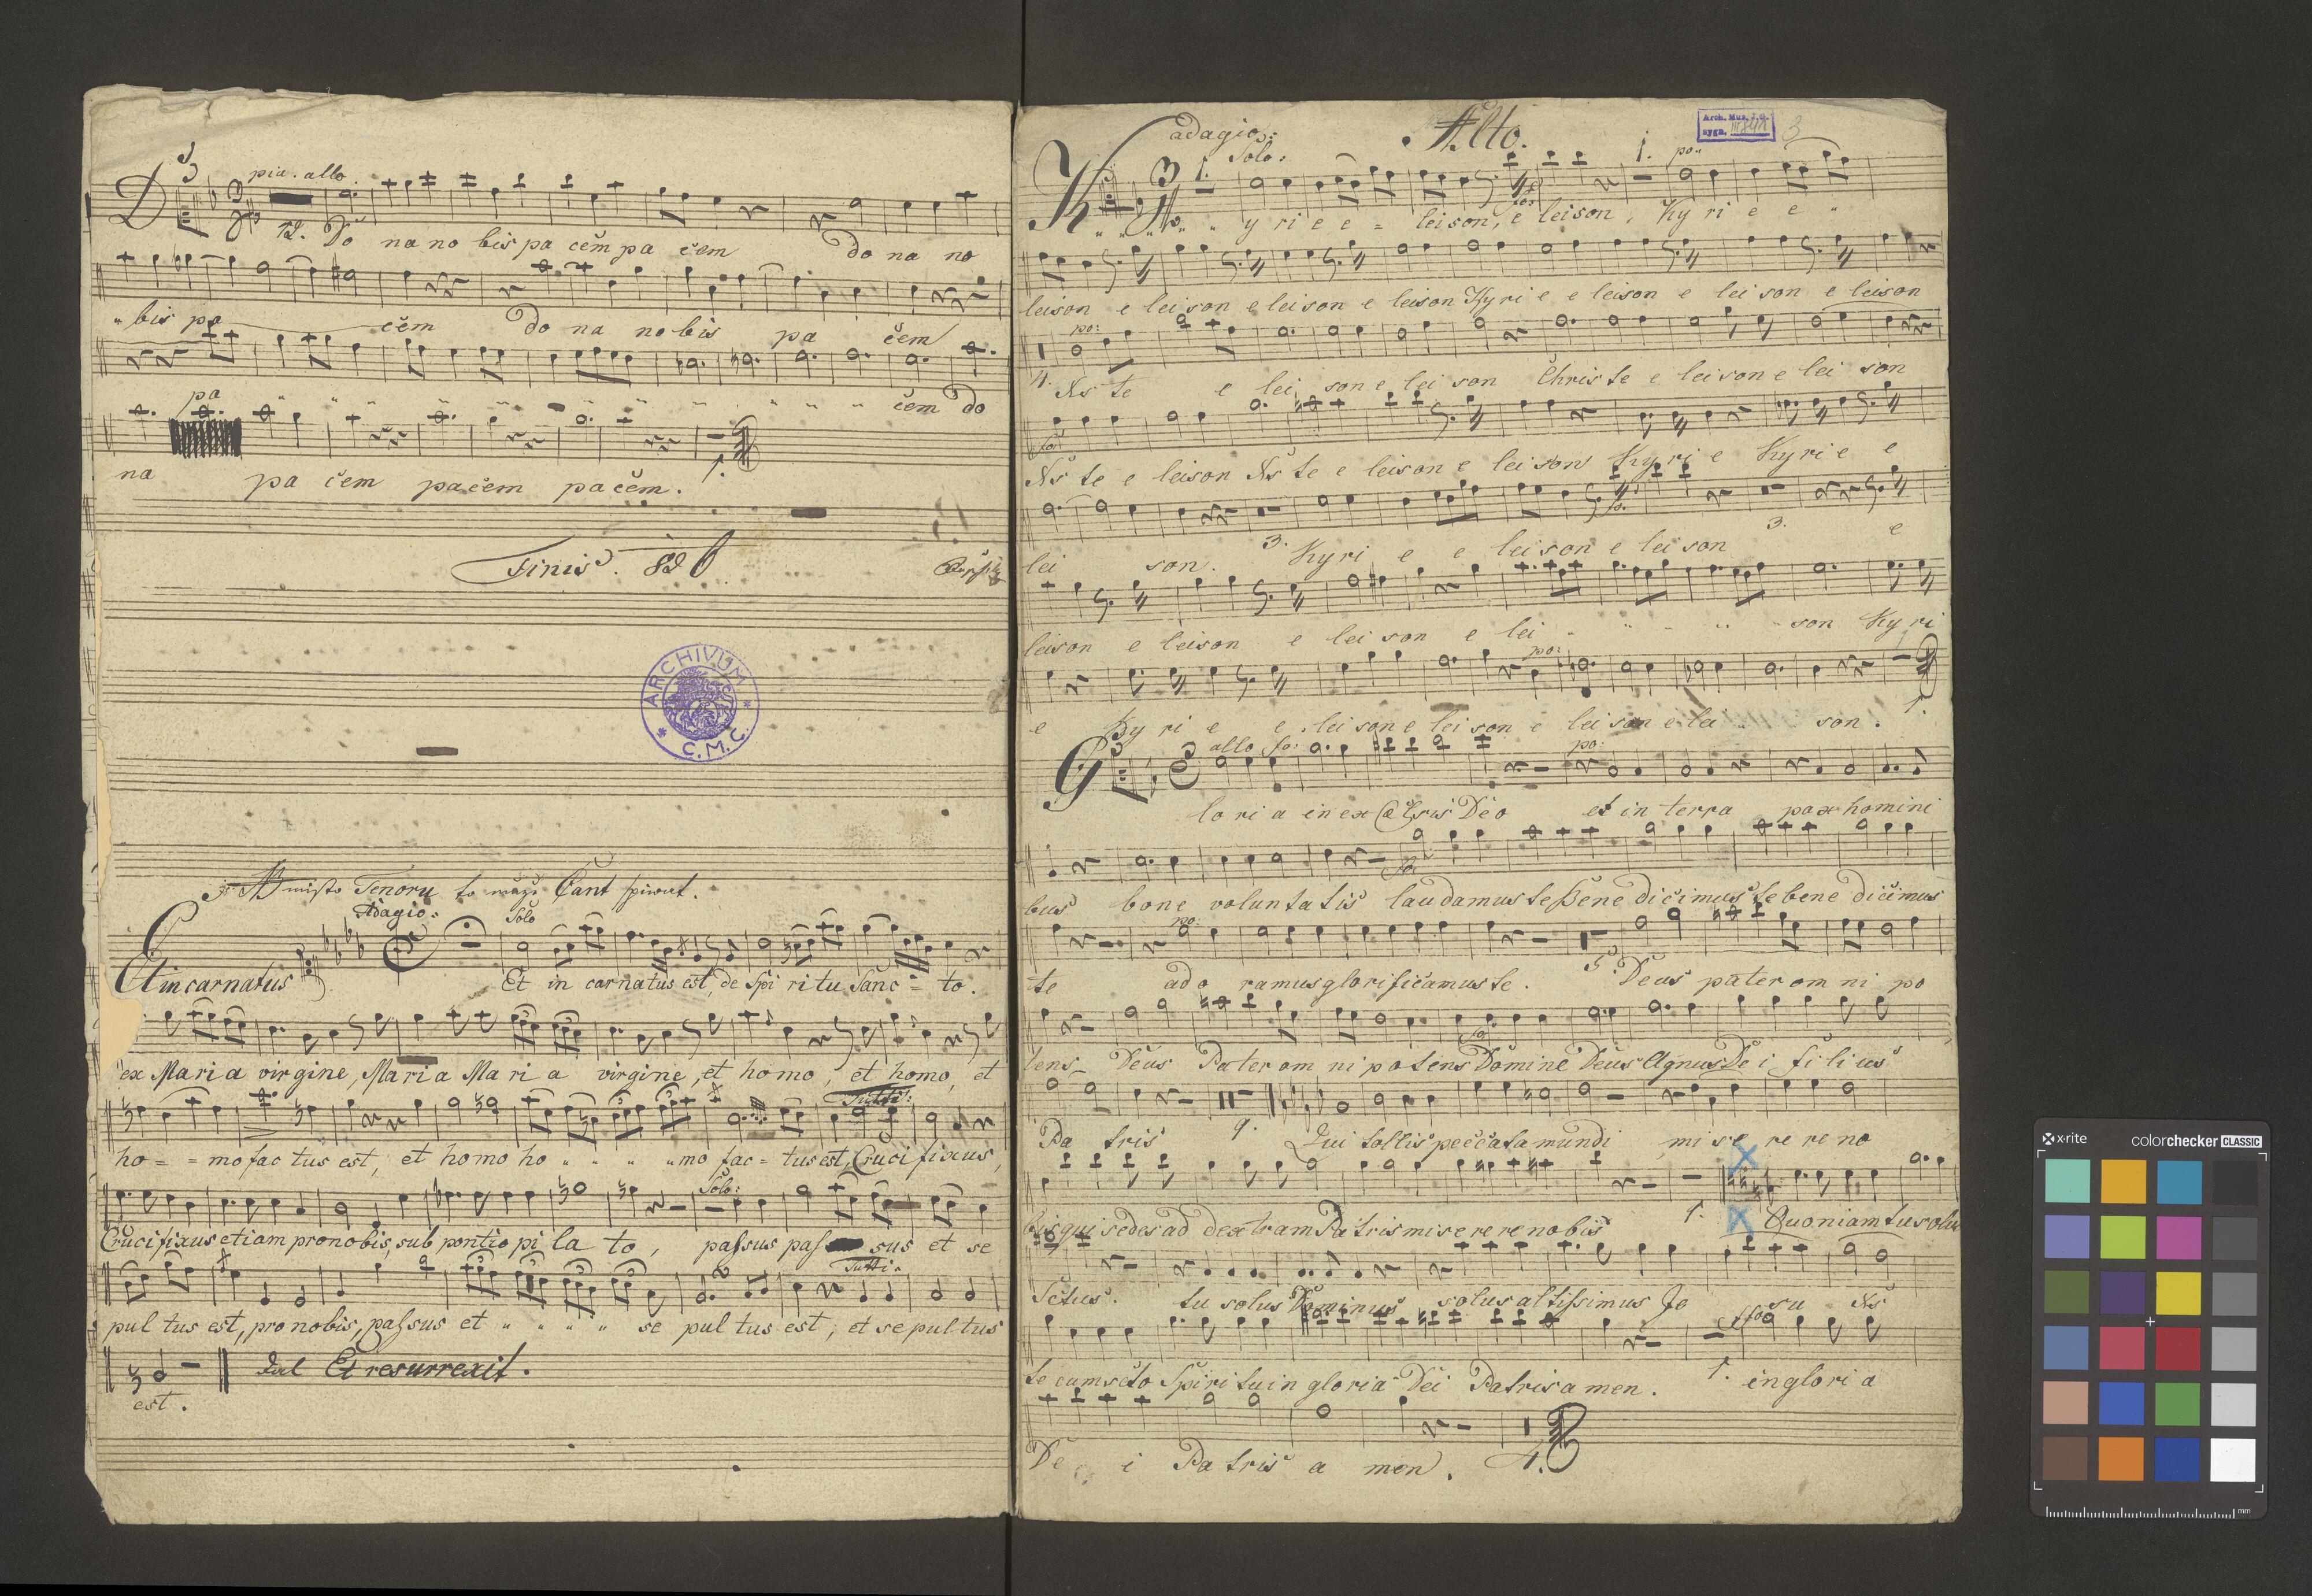 piu. allo
12. Do na no bis pa cem pa cem do na no
bis pa cem do na no bis pa cem
pa cem do
na pa cem pacem pacem. 1.
Finis.
ARCHIVUM C.M.C.
misto Tenoru to Cant
Adagio: Solo
Et incarnatus Et in carnatus est, de Spi ri tu Sanc = to.
ex Maria virgine, Maria Ma ri a virgine, et homo, et homo, et
Tutti:
ho = = mo fac tus est, et homo ho " " " " mo fac = tus est, Crucifixus,
Solo:
Crucifixus etiam pro nobis, sub pontio pi la to, passus pas sus et se
Tutti
pul tus est, pro nobis, passus et " " " " se pul tus est, et se pul tus
est. Et resurrexit.
Alto.
Arch. Mus. J. G.
sygn. 3
adagio:
Solo: 1. po
K y ri e e = leison, e leison, Ky ri e e "
leison e leison e leison e leison Kyri e e leison e lei son e leison
po:
4. Xs te e lei son e lei son Christe e leison e lei son
fo:
Xs te e leison Xs te e leison e leison Ky ri e Kyri e e
lei son. 3. Kyri e e leison e lei son 3. e
leison e leison e lei son e lei " " " " " son Ky ri
po:
e Ky ri e e leison e lei son e lei son e lei son. 1.
allo fo: po:
G lo ri a in ex Celsis Deo et in terra pax homini
bus bone voluntatis laudamus te Bene dicimus te bene dicimus
po
te ado ramus glorificamus te. 5. Deus pater om ni po
tens Deus Pater om ni potens Domine Deus Agnus De i fi li us
Pa tris 9. Qui tollis peccata mundi mi se re re no
bis qui sedes ad dextram Patris mi se re re nobis 1. Quoniam tu solus
Sctus. tu solus Dominus solus altissimus Je su Xs
ffo
te cum scto Spiri tu in gloria Dei Patris amen. 1. in glori a
De i Pa tris a men. 4.
x-rite colorchecker CLASSIC
mm